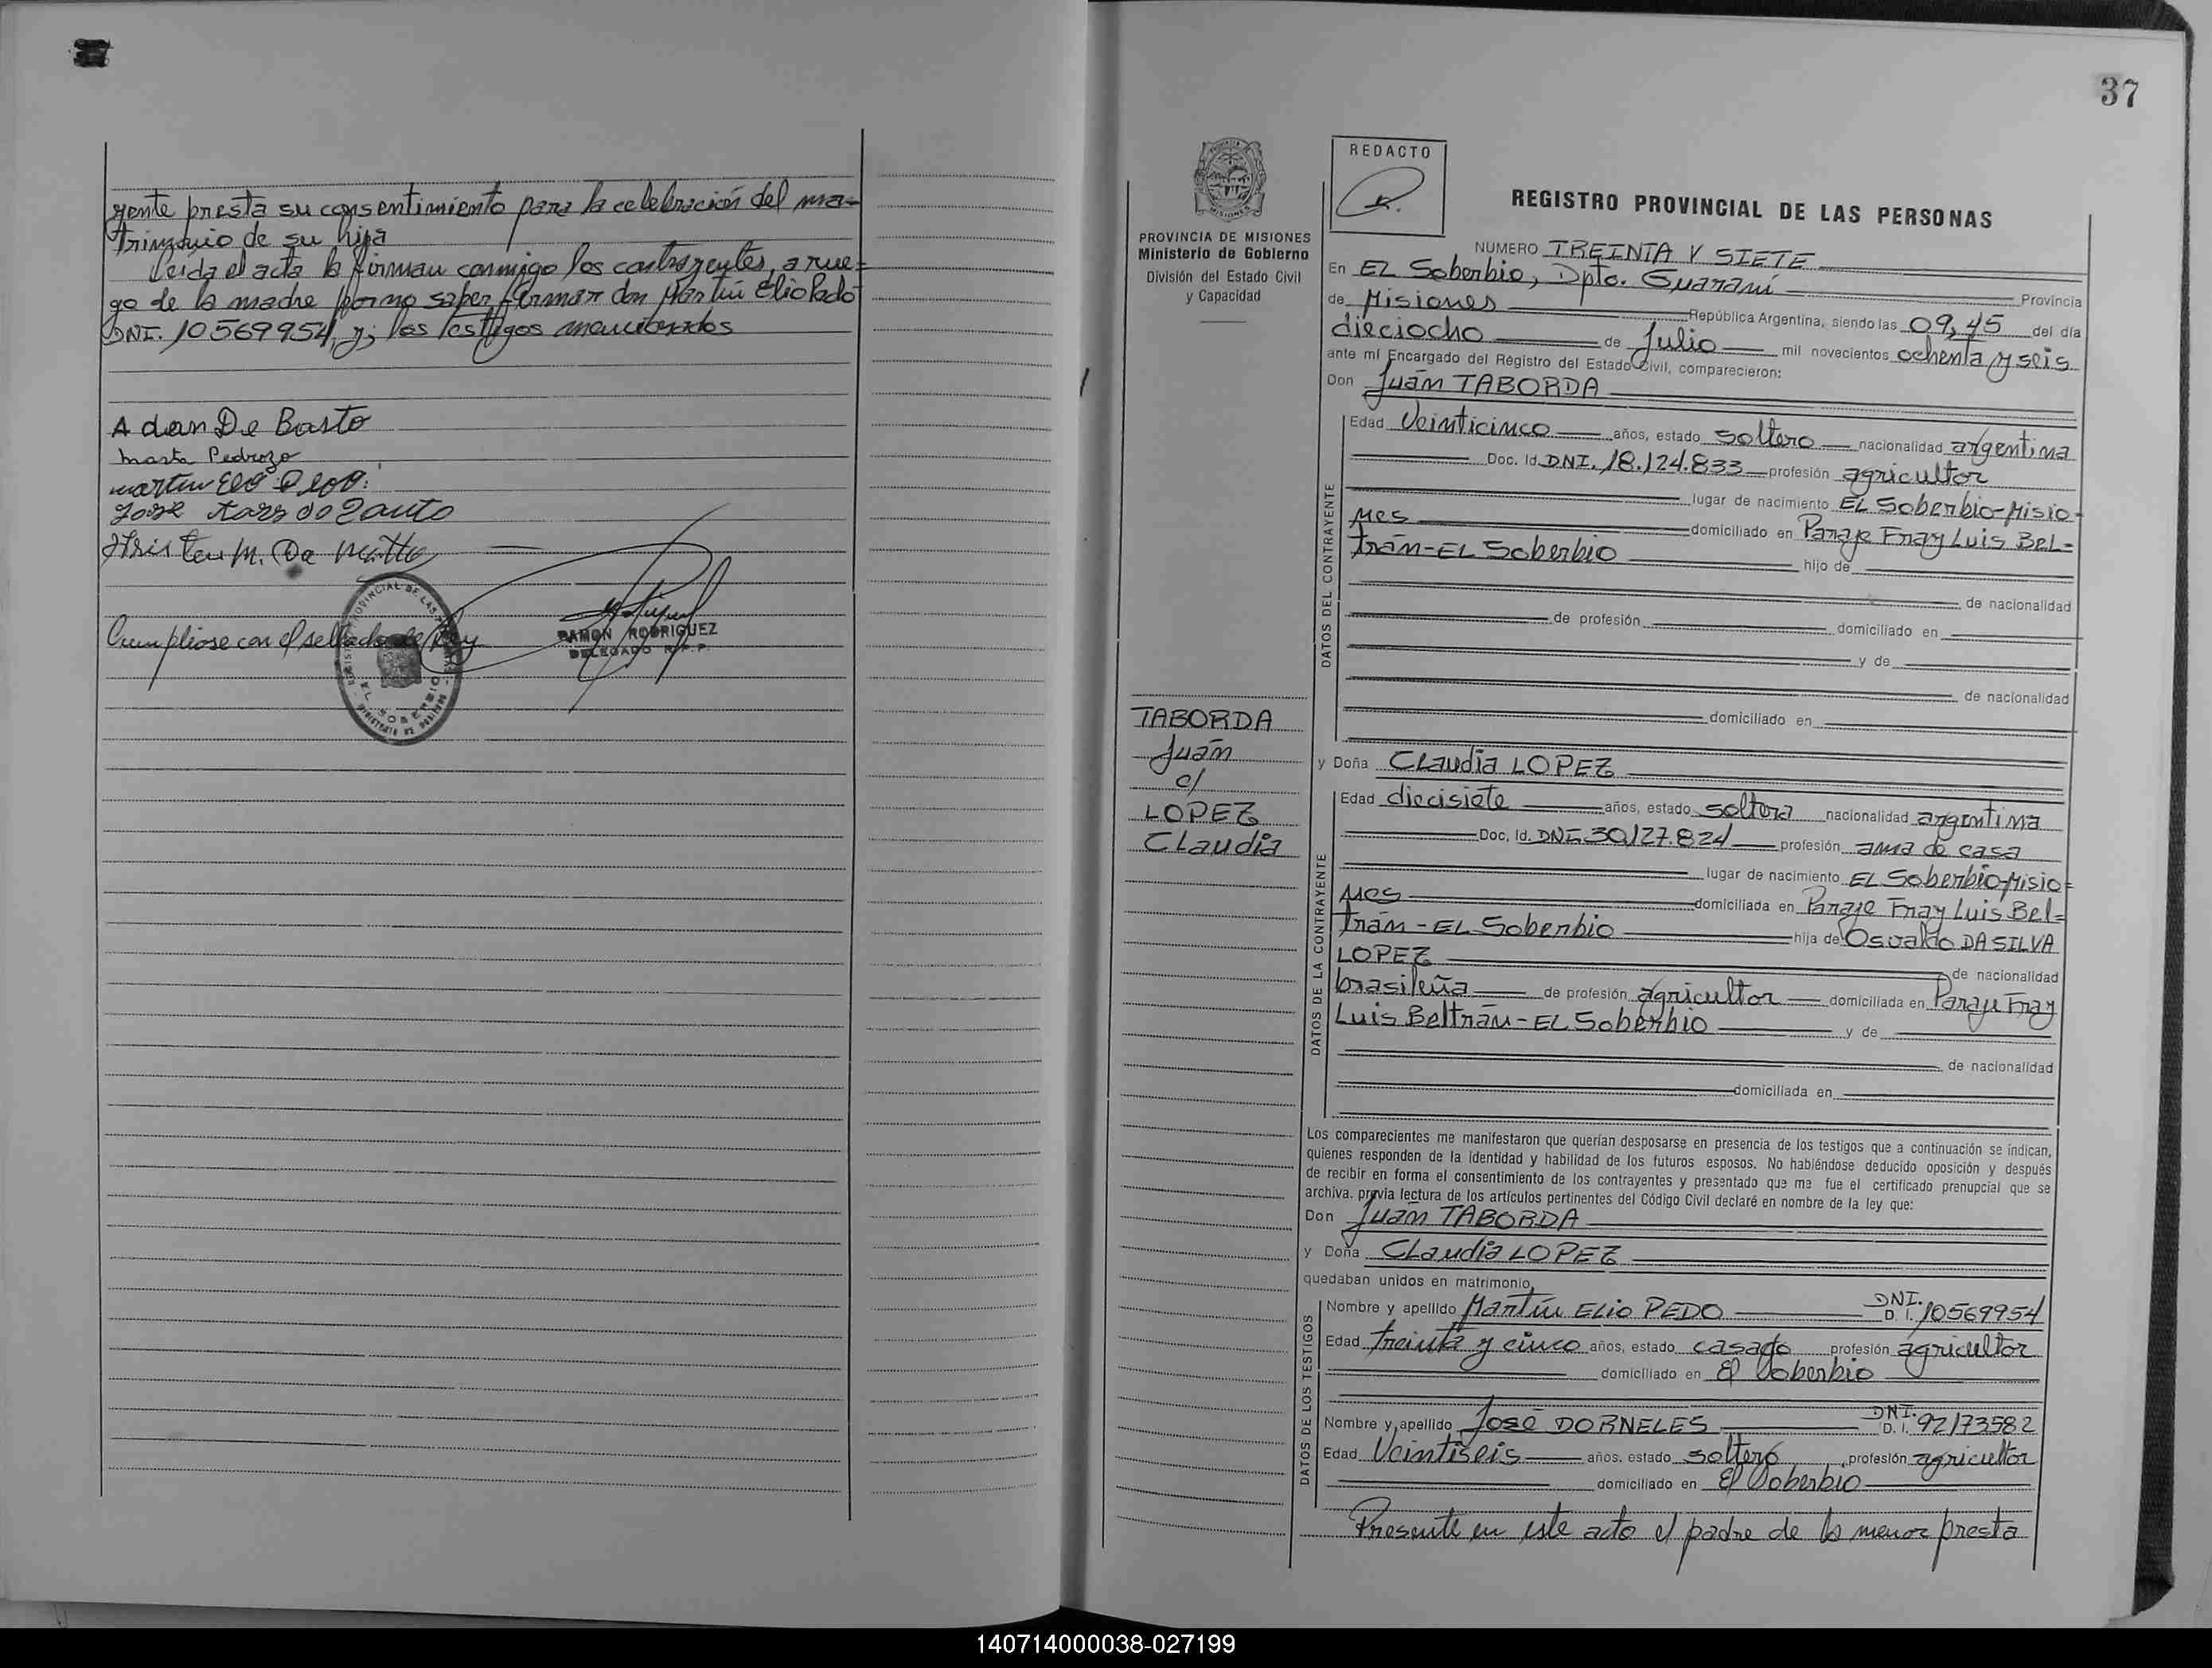 yente presta su consentimiento para la celebración del ma-
trimonio de su hija
Leida el acta la firman conmigo los contrayentes, a rue=
go de la madre por no saber firmar don Martín Elio Pedo
DNI. 10569954, y; los testigos mencionados
Adan De Basto
Marta Pedrozo
José
M. De Matto
Cumpliose con el sellado de Ley
RAMON RODRIGUEZ
DELEGADO R.P.P.
EL SOBERBIO
37
PROVINCIA DE MISIONES
Ministerio de Gobierno
División del Estado Civil
y Capacidad
TABORDA
Juán
c/
LOPEZ
Claudia
REDACTO
REGISTRO PROVINCIAL DE LAS PERSONAS
NUMERO TREINTA Y SIETE
En EL Soberbio, Dpto. Guaraní Provincia
de Misiones República Argentina, siendo las 09,45 del día
dieciocho de Julio mil novecientos ochenta y seis
ante mí Encargado del Registro del Estado Civil, comparecieron:
Don Juán TABORDA
DATOS DEL CONTRAYENTE
Edad Veinticinco años, estado soltero nacionalidad argentina
Doc. Id. DNI. 18.124.833 profesión agricultor
lugar de nacimiento EL Soberbio-Misio-
nes domiciliado en Paraje Fray Luis BEL=
trán-EL Soberbio hijo de
de nacionalidad
de profesión domiciliado en
y de
de nacionalidad
domiciliado en
y Doña Claudia LOPEZ
DATOS DE LA CONTRAYENTE
Edad diecisiete años, estado soltera nacionalidad argentina
Doc. Id. DNI. 30.127.824 profesión ama de casa
lugar de nacimiento EL Soberbio-Misio=
nes domiciliada en Paraje Fray Luis Bel=
trán - EL Soberbio hija de Osvaldo DA SILVA
LOPEZ de nacionalidad
brasileña de profesión agricultor domiciliada en Paraje Fray
Luis Beltrán - EL Soberbio y de
de nacionalidad
domiciliada en
Los comparecientes me manifestaron que querían desposarse en presencia de los testigos que a continuación se indican,
quienes responden de la identidad y habilidad de los futuros esposos. No habiéndose deducido oposición y después
de recibir en forma el consentimiento de los contrayentes y presentado que me fue el certificado prenupcial que se
archiva. previa lectura de los artículos pertinentes del Código Civil declaré en nombre de la ley que:
Don Juán TABORDA
y Doña Claudia LOPEZ
quedaban unidos en matrimonio,
DATOS DE LOS TESTIGOS
Nombre y apellido Martín ELio PEDO DNI. D. I. 10569954
Edad treinta y cinco años, estado casado profesión agricultor
domiciliado en El Soberbio
Nombre y apellido José DORNELES DNI. D. I. 92173582
Edad Veintiseis años, estado soltero profesión agricultor
domiciliado en El Soberbio
Presente en este acto el padre de la menor presta
140714000038-027199